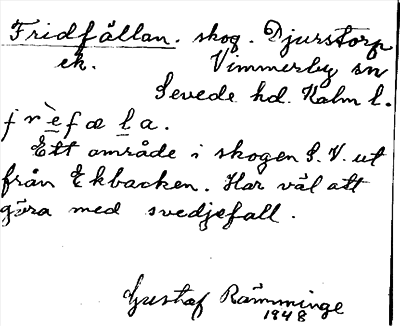 Fridfällan. skog. Djurstorp
ek. Vimmerby sn
Sevede hd. Kalm l.
frèfæla.
Ett område i skogen S.V. ut
från Ekbacken. Har väl att
göra med svedjefall.
Gustaf Rämminge
1948